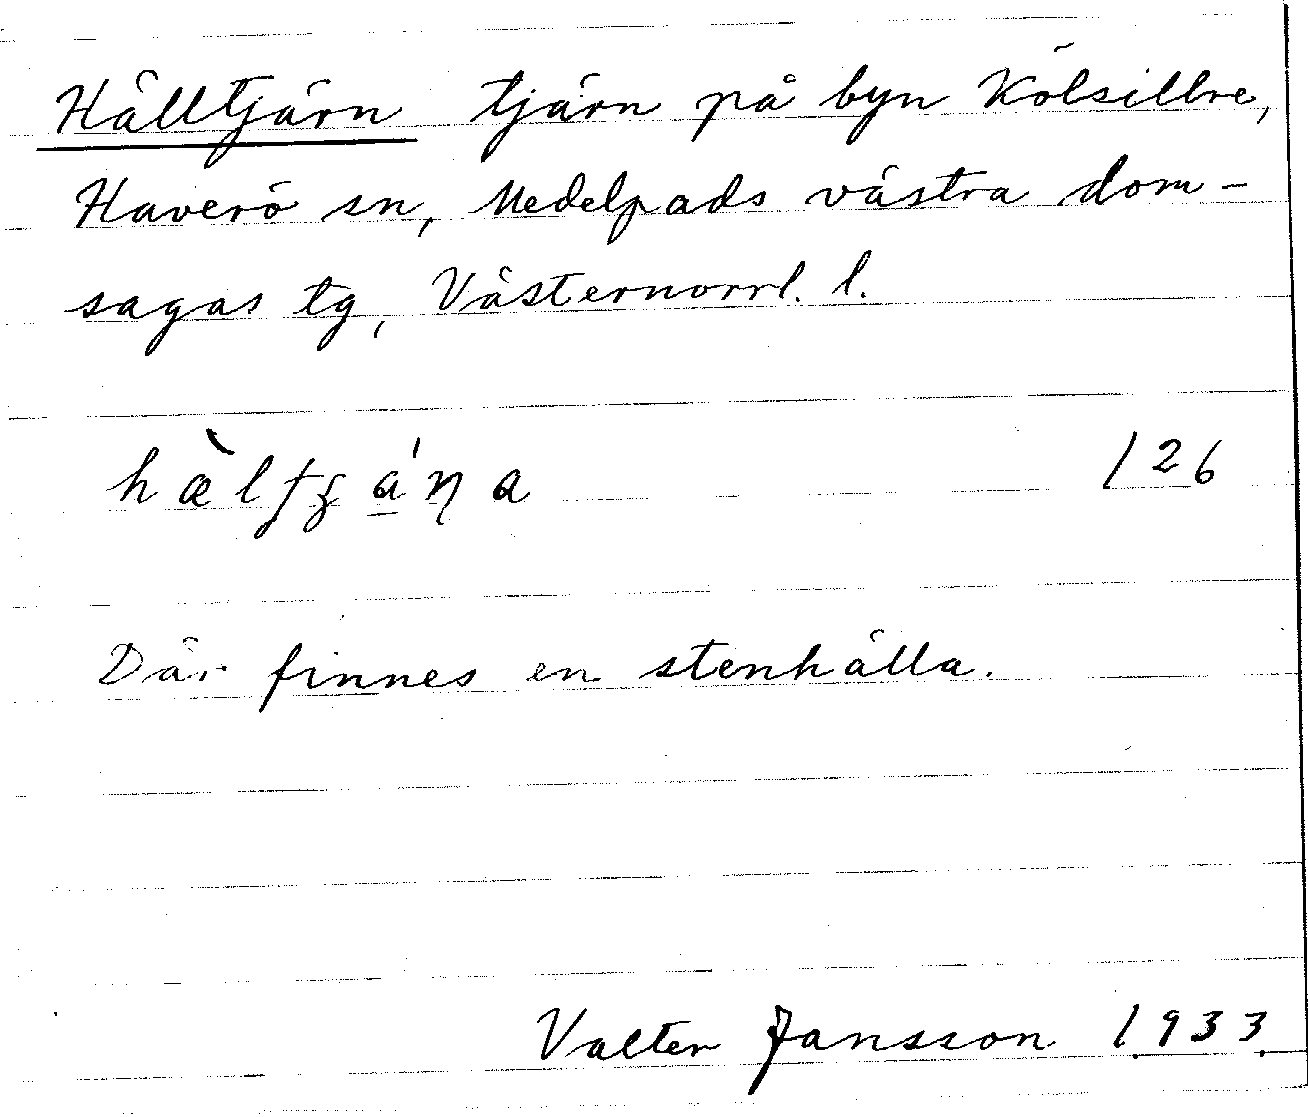 Hälltjärn tjärn på byn Kölsillre,
Haverö sn, Medelpads västra dom-
sagas tg, Västernorrl. l.
126
Där finnes en stenhälla.
Valter Jansson 1933.